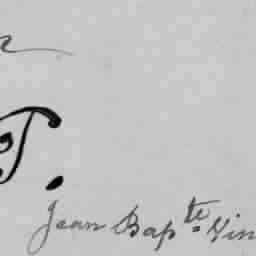 T.
Jean Bapte Vin